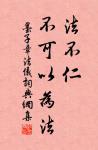 法不仁
不可以為法
墨子章法儀詞典網集